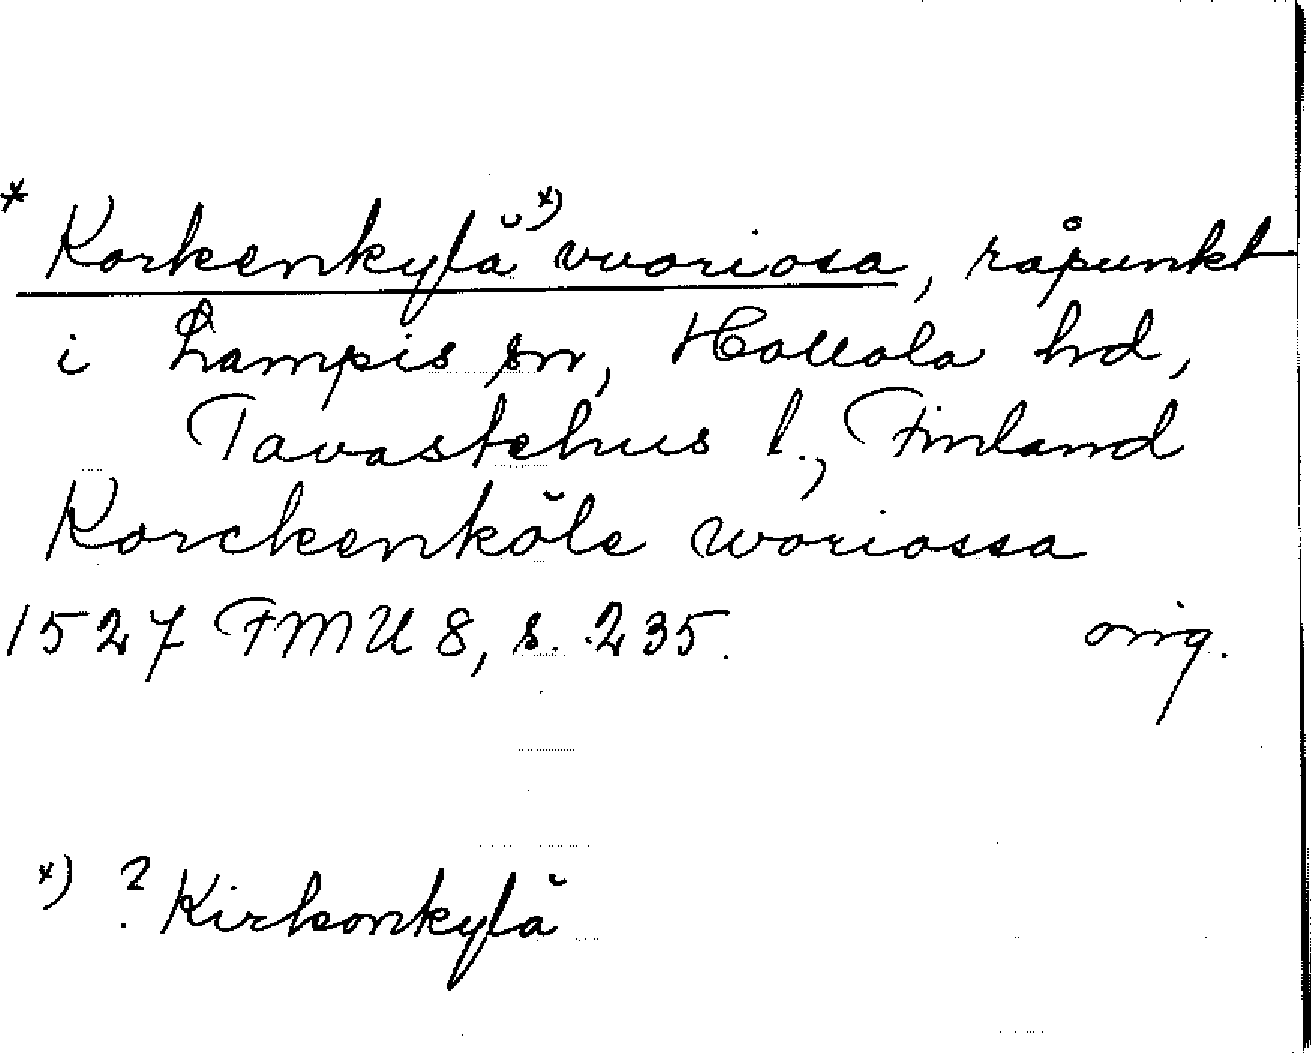 * Korkenkylä *) vuoriosa, råpunkt
i Lampis sn, Hollola hd,
Tavastehus l., Finland
Korckenköle woriossa
1527 FMU 8, s. 235. orig.
*) ? Kirkonkylä